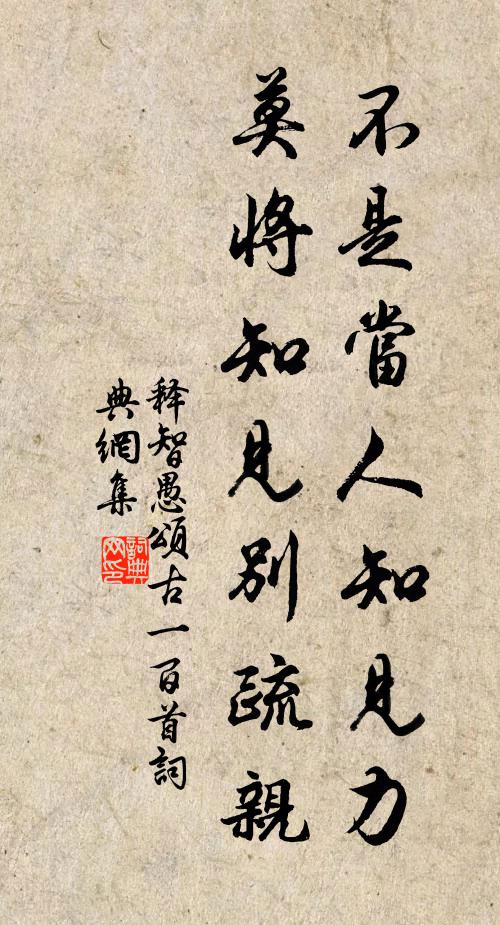 不是當人知見力
莫將知見別疏親
释智愚頌古一百首詞
典網集
詞典網印